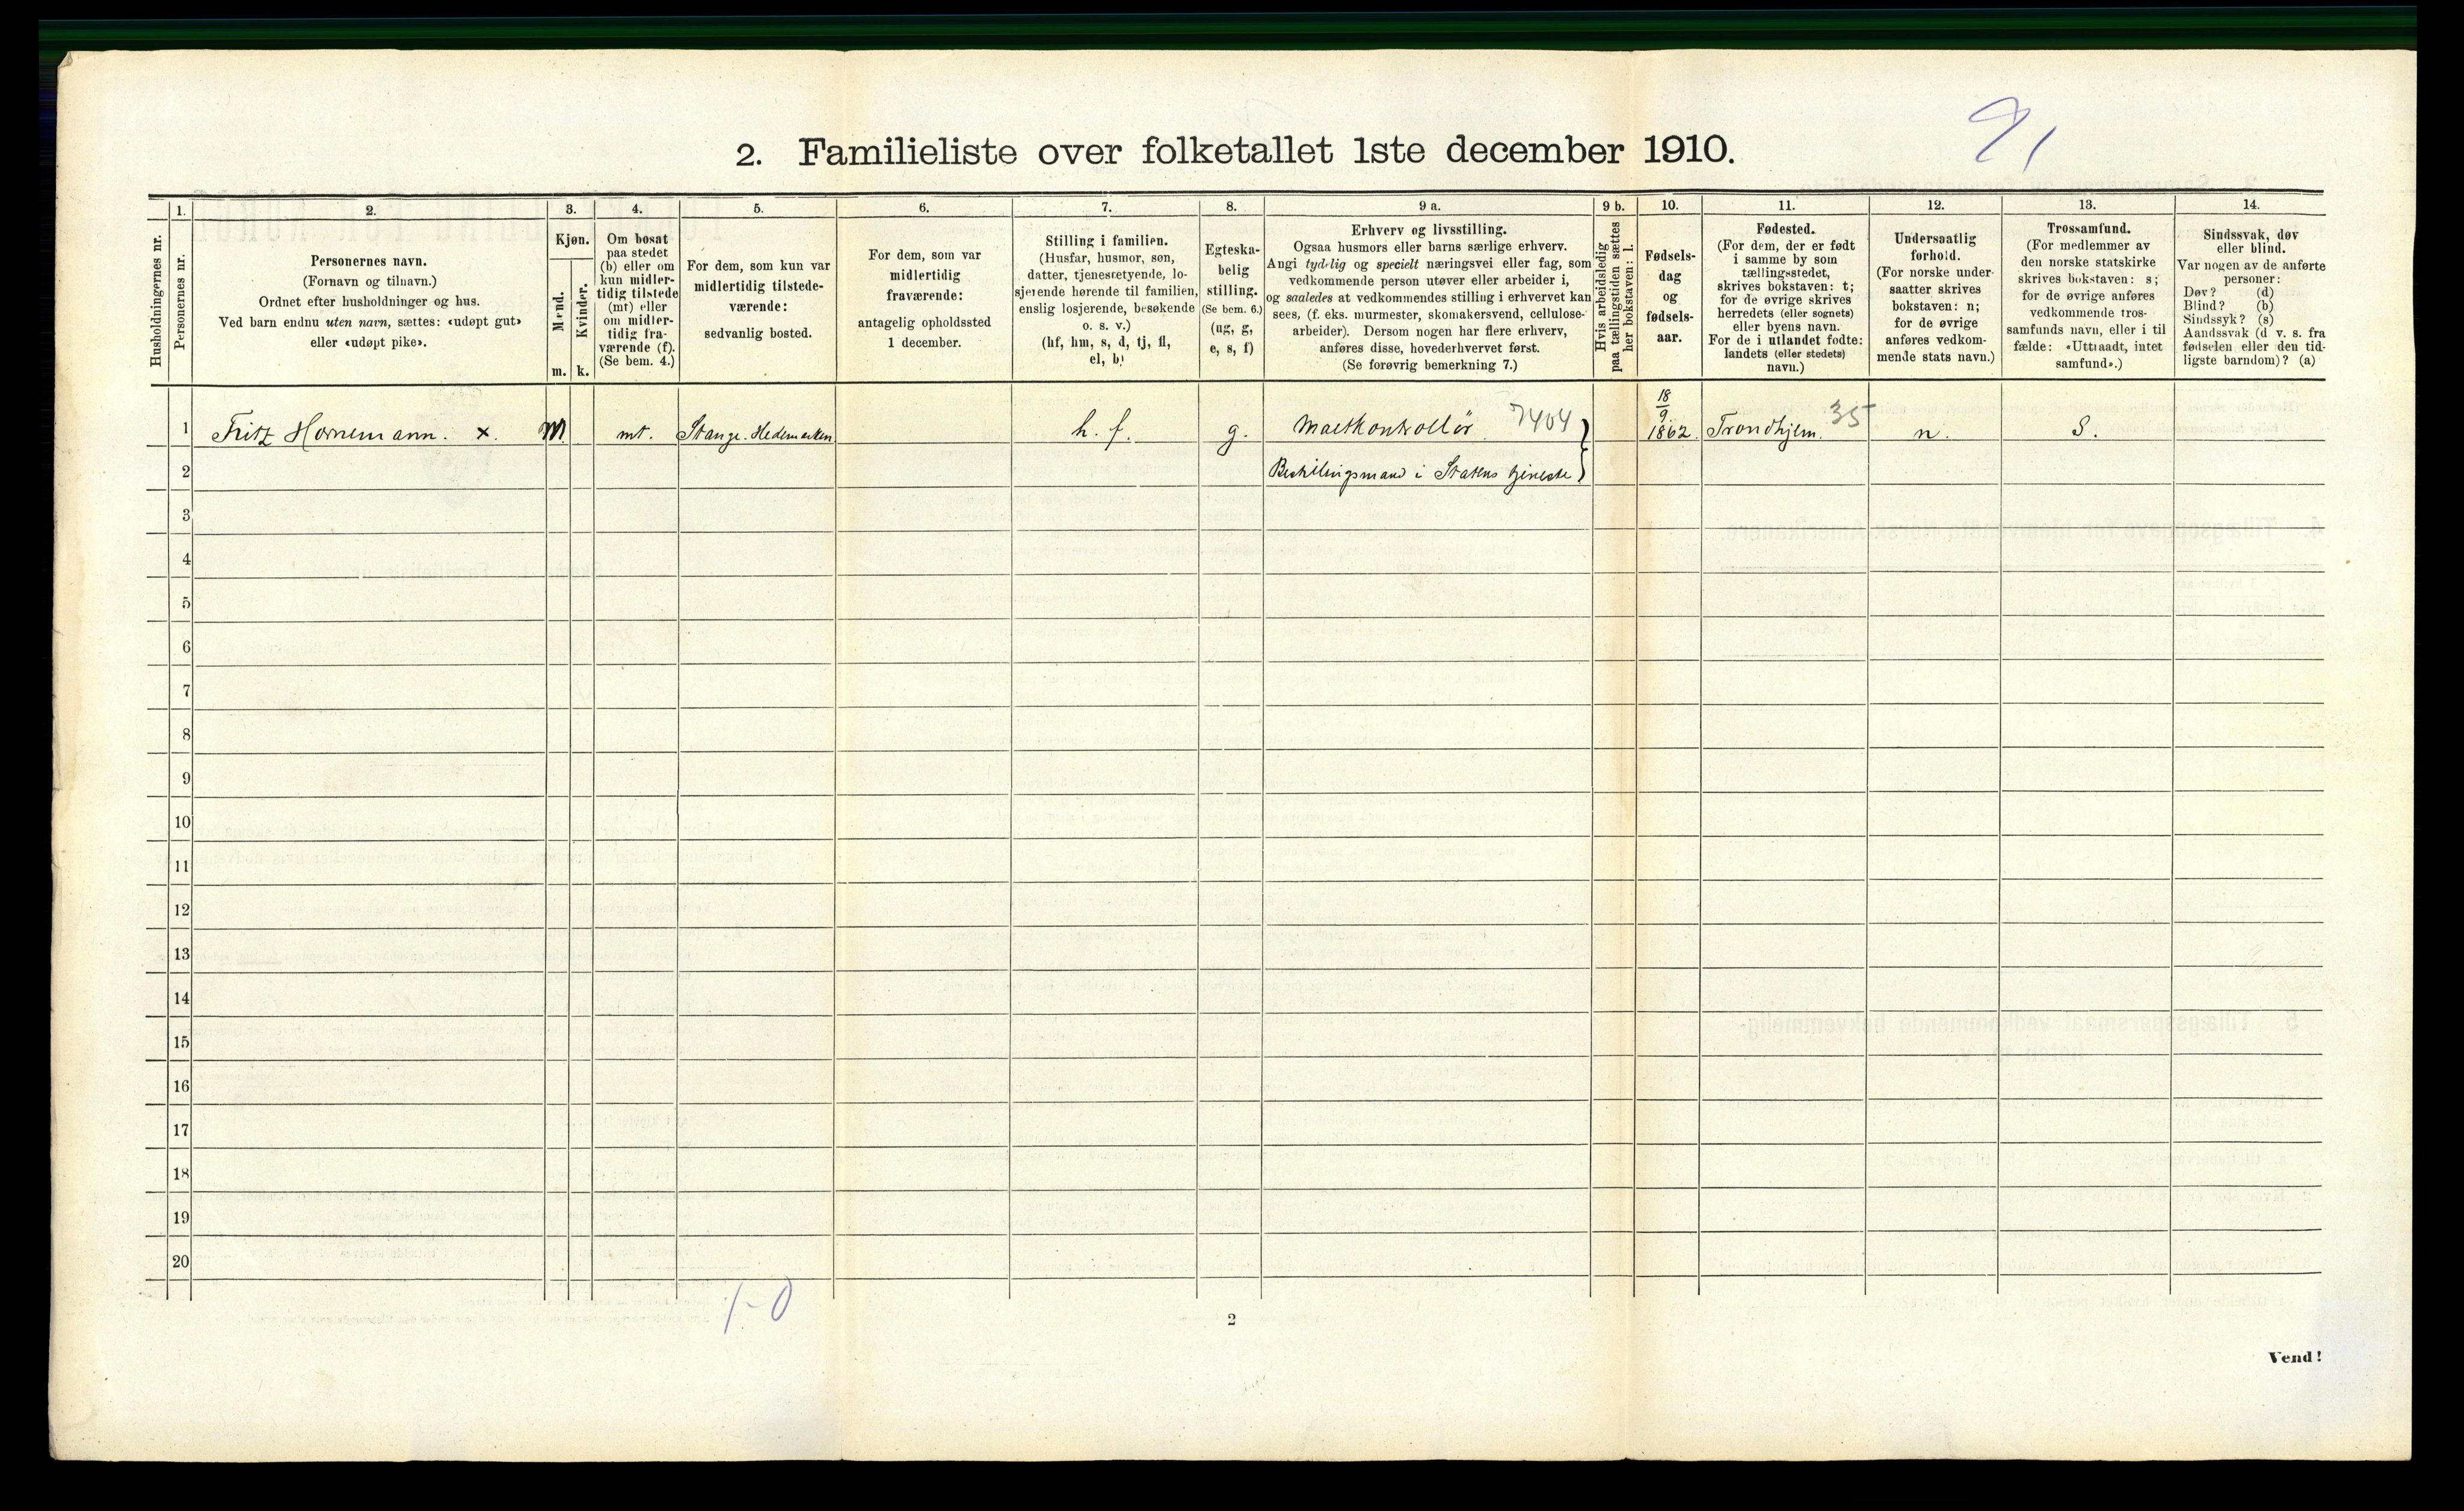 91
2. Familieliste over folketallet 1ste december 1910.
Husholdningernes nr.
1.
Personernes nr.
2.
Personernes navn.
(Fornavn og tilnavn.)
Ordnet efter husholdninger og hus.
Ved barn endnu uten navn, sættes: «udøpt gut»
eller «udøpt pike».
3.
Kjøn.
Mænd.
Kvinder.
m.
k.
4.
Om bosat
paa stedet
(b) eller om
kun midler-
tidig tilstede
(mt) eller
om midler-
tidig fra-
værende (f).
(Se bem. 4.)
5.
For dem, som kun var
midlertidig tilstede-
værende:
sedvanlig bosted.
6.
For dem, som var
midlertidig
fraværende:
antagelig opholdssted
1 december.
7.
Stilling i familien.
(Husfar, husmor, søn,
datter, tjenestetyende, lo-
sjerende hørende til familien,
enslig losjerende, besøkende
o. s. v.)
(hf, hm, s, d, tj, fl,
el, b)
8.
Egteska-
belig
stilling.
(Se bem. 6.)
(ug, g,
e, s, f)
9 a.
Erhverv og livsstilling.
Ogsaa husmors eller barns særlige erhverv.
Angi tydelig og specielt næringsvei eller fag, som
vedkommende person utøver eller arbeider i,
og saaledes at vedkommendes stilling i erhvervet kan
sees, (f. eks. murmester, skomakersvend, cellulose-
arbeider). Dersom nogen har flere erhverv,
anføres disse, hovederhvervet først.
(Se forøvrig bemerkning 7.)
9 b.
Hvis arbeidsledig
paa tællingstiden sættes
her bokstaven: l.
10.
Fødsels-
dag
og
fødsels-
aar.
11.
Fødested.
(For dem, der er født
i samme by som
tællingsstedet,
skrives bokstaven: t;
for de øvrige skrives
herredets (eller sognets)
eller byens navn.
For de i utlandet fødte:
landets (eller stedets)
navn.)
12.
Undersaatlig
forhold.
(For norske under-
saatter skrives
bokstaven: n;
for de øvrige
anføres vedkom-
mende stats navn.)
13.
Trossamfund.
(For medlemmer av
den norske statskirke
skrives bokstaven: s;
for de øvrige anføres
vedkommende tros-
samfunds navn, eller i til
fælde: «Uttraadt, intet
samfund».)
14.
Sindssvak, døv
eller blind.
Var nogen av de anførte
personer:
Døv? (d)
Blind? (b)
Sindssyk? (s)
Aandssvak (d v. s. fra
fødselen eller den tid-
ligste barndom)? (a)
1 Fritz Hornemann. x. M mt. Stange. Hedemarken h. f. g. Maltkontrollør 7404 18/9 1862. Trondhjem. 35 n. S.
2 Bestillingsmand i Statens tjeneste
3
4
5
6
7
8
9
10
11
12
13
14
15
16
17
18
19
20
1-0
2
Vend!